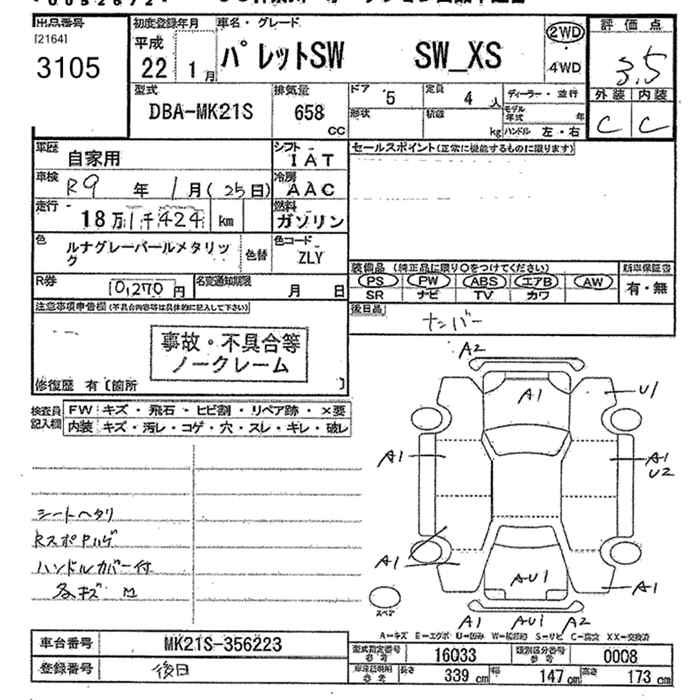 出品番号
[2164]
3105
初度登録年月
平成
22年1月
車名・グレード
パレットSW SW_XS
2WD
4WD
評価点
3.5
外装 内装
C C
型式
DBA-MK21S
排気量
658
cc
ドア
5
定員
4人
形状
積載
kg
ディーラー・並行
モデル年式 年
ハンドル 左・右
車歴
自家用
シフト
IAT
車検
R9年1月(25日)
冷房
AAC
走行
18万1千424km
燃料
ガソリン
色
ルナグレーパールメタリック
色替
色コード
ZLY
R券
10,270円
名変通知期限
月 日
セールスポイント(正常に機能するものに限ります)
装備品 (純正品に限り○をつけてください)
PS PW ABS エアB AW
SR ナビ TV カワ
新車保証書
有・無
後日品
ナンバー
注意事項申告欄(不具合内容等は具体的に記入して下さい)
事故・不具合等
ノークレーム
修復歴 有〔箇所 〕
検査員
記入欄
FW キズ・飛石・ヒビ割・リペア跡・×要
内装 キズ・汚レ・コゲ・穴・スレ・キレ・破レ
シートヘタリ
ハンドルカバー付
A2
A1
U1
A1
A1
U2
A1
AU1
A1
A1 AU1 A2
スペア
A-キズ E-エクボ U-凹み W-補修跡 S-サビ C-腐食 XX-交換済
車台番号
MK21S-356223
登録番号
後日
型式指定番号
参考
16033
類別区分番号
参考
0008
車検証明細
参考
長さ
339cm
幅
147cm
高さ
173cm